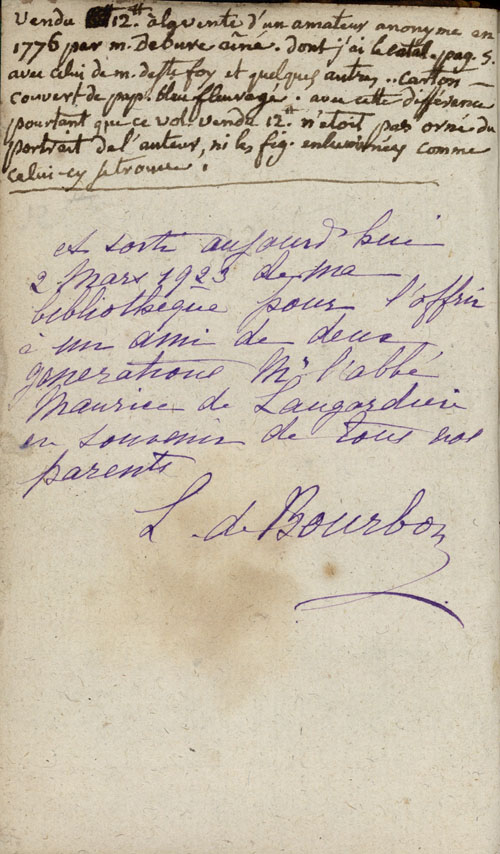 vendu 12.tt à la vente d'un amateur anonyme en
1776 par m. Debure aîné. dont j'ai le catal. pag. 5.
avec celui de m. de ste foy et quelques autres.. Carton
couvert de pap. bleu fleuragé. avec cette différence
pourtant que ce vol. vendu 12.tt n'etoit pas orné du
portrait de l'auteur, ni les fig. enluminées comme
celui-cy se trouve.
est sorti aujourd'hui
2 Mars 1923 de ma
bibliothèque pour l'offrir
à un ami de deux
generations Mr l'abbé
Maurice de Laugardière
en souvenir de tous nos
parents
L. de Bourbon